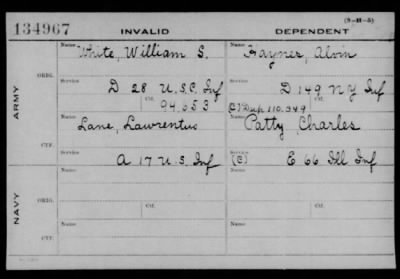 134967 INVALID DEPENDENT (3-H-5)
Name Name
White, William S. Hayner, Alvin
ARMY
ORIG.
Service Service
D 28 U.S.C. Inf D 149 N Y Inf
Ctf. Ctf.
94.653 (C) Dup 110.349
Name Name
Lane, Lawrentus Patty Charles
CTF.
Service Service
A 17 U.S. Inf (C) E 66 Ill Inf
NAVY
Name Name
ORIG.
Service Service
Ctf. Ctf.
Name Name
CTF.
Service Service